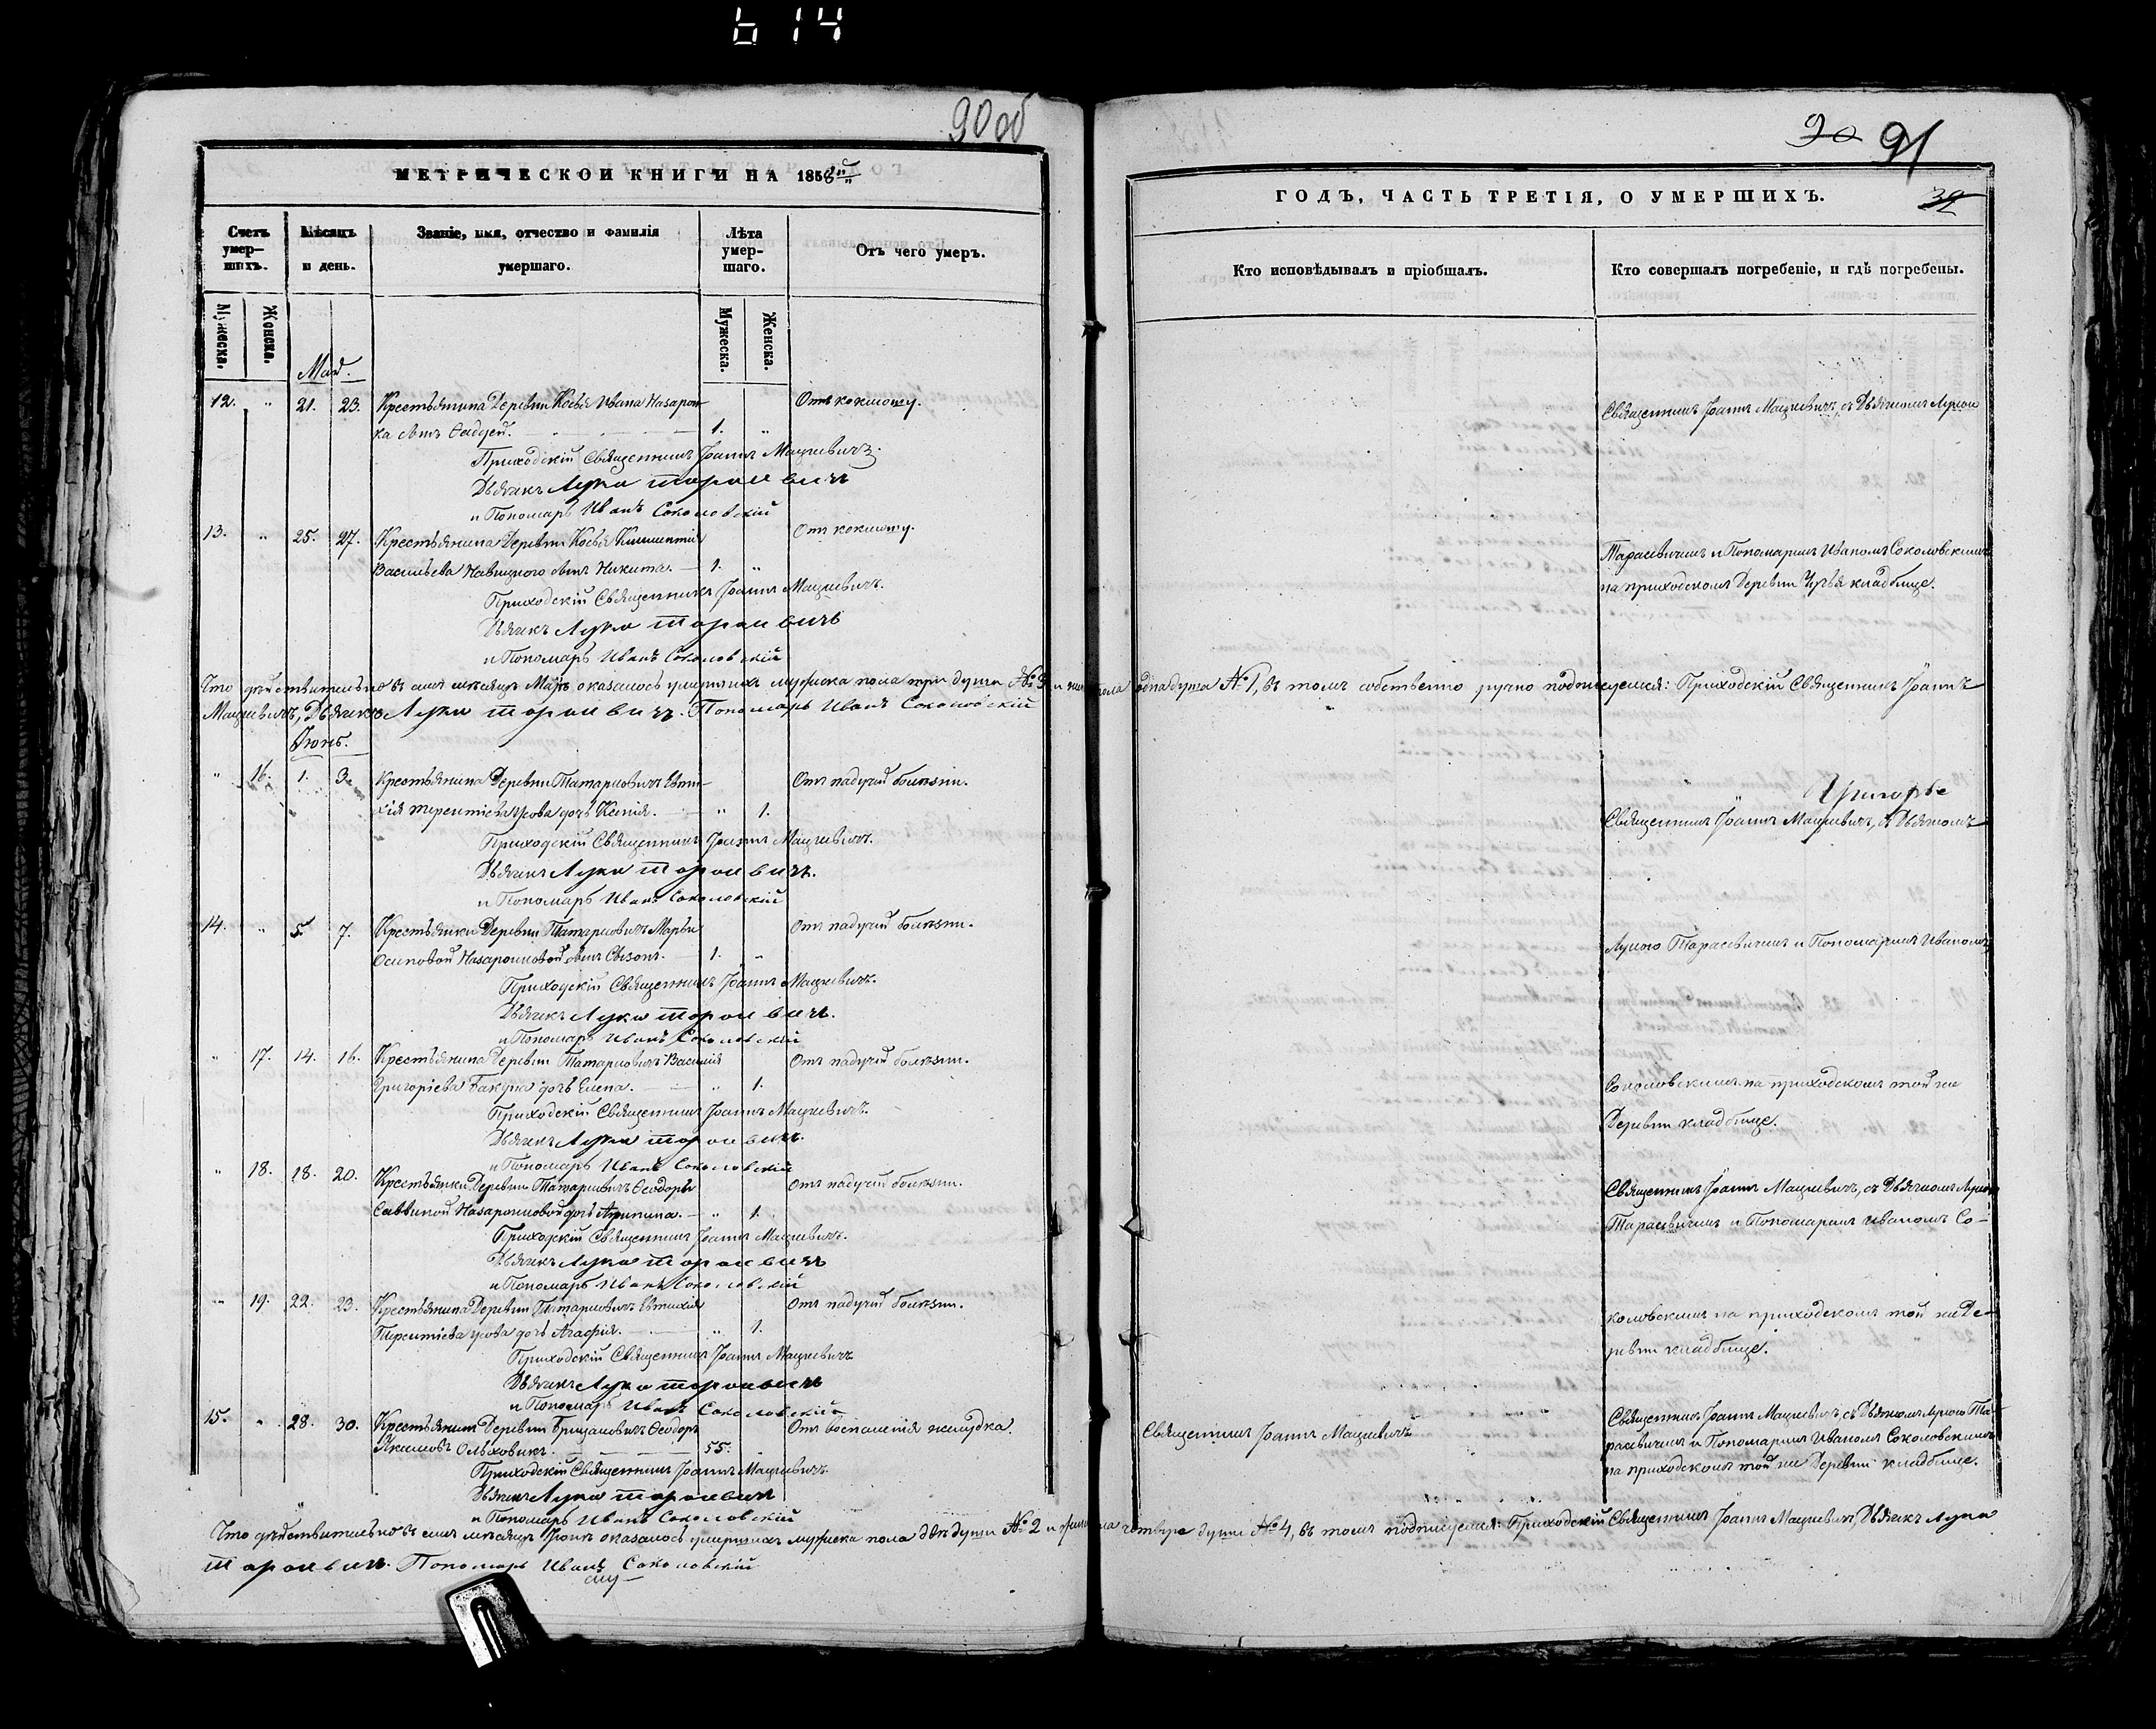 614
90 об
МЕТРИЧЕСКОЙ КНИГИ НА 1858й
Счетъ умер-
шихъ.
Мѣсяцъ и день.
Званіе, имя, отчество и фамилія
умершаго.
Лѣта умер-
шаго.
Отъ чего умеръ.
Мужеска.
Женска.
Мужеска.
Женска.
Май.
12. " 21. 23. Крестьянина Деревни Косья Ивана Назарои- Отъ коклюшу.
ка сынъ Фаддей. 1. "
Приходскій Священникъ Іоаннъ Мацкевичъ.
Дьячекъ Лука Тарасевичъ
и Пономарь Иванъ Соколовскій
13. " 25. 27. Крестьянина Деревни Косья Климентія Отъ коклюшу.
Васильева сынъ Никита. 1. "
Приходскій Священникъ Іоаннъ Мацкевичъ.
Дьячекъ Лука Тарасевичъ
и Пономарь Иванъ Соколовскій
Что дѣйствительно въ семъ мѣсяцѣ Маѣ оказалось умершихъ мужеска пола три души № 3 и пола одна душа № 1, въ томъ собственно ручно подписуемся: Приходскій Священникъ Іоаннъ
Мацкевичъ, Дьячекъ Лука Тарасевичъ. Пономарь Иванъ Соколовскій
Іюнь.
" 16. 1. 3. Крестьянина Деревни Татарновичъ Евти- Отъ падучей болѣзни.
хія Терентіева Усова дочь Ксенія. " 1.
Приходскій Священникъ Іоаннъ Мацкевичъ.
Дьячекъ Лука Тарасевичъ.
и Пономарь Иванъ Соколовскій
14. " 5. 7. Крестьянки Деревни Татарновичъ Марьи Отъ падучей болѣзни.
Осиповой Назароиковой сынъ 1. "
Приходскій Священникъ Іоаннъ Мацкевичъ.
Дьячекъ Лука Тарасевичъ.
и Пономарь Иванъ Соколовскій
" 17. 14. 16. Крестьянина Деревни Татарновичъ Василія Отъ падучей болѣзни.
Григоріева Бакуна дочь Елена. " 1.
Приходскій Священникъ Іоаннъ Мацкевичъ.
Дьячекъ Лука Тарасевичъ.
и Пономарь Иванъ Соколовскій
" 18. 18. 20. Крестьянки Деревни Татарновичъ Ѳеодоры Отъ падучей болѣзни.
Саввиной Назароиковой дочь Агрипина. " 1.
Приходскій Священникъ Іоаннъ Мацкевичъ.
Дьячекъ Лука Тарасевичъ
и Пономарь Иванъ Соколовскій
" 19. 22. 23. Крестьянина Деревни Татарновичъ Евтихія Отъ падучей болѣзни.
Терентіева Усова дочь Агафія. " 1.
Приходскій Священникъ Іоаннъ Мацкевичъ
Дьячекъ Лука Тарасевичъ
и Пономарь Иванъ Соколовскій
15. " 28. 30. Крестьянинъ Деревни Брицаловичъ Ѳеодоръ Отъ воспаленія желудка.
Ольховикъ. 55.
Приходскій Священникъ Іоаннъ Мацкевичъ.
Дьячекъ Лука Тарасевичъ
и Пономарь Иванъ Соколовскій
Что дѣйствительно въ семъ мѣсяцѣ Іюнѣ оказалось умершихъ мужеска пола двѣ души № 2 и пола четыре души № 4, въ томъ подписуемся: Приходскій Священникъ Іоаннъ Мацкевичъ, Дьячекъ Лука
Тарасевичъ. Пономарь Иванъ Соколовскій
90 91
ГОДЪ, ЧАСТЬ ТРЕТІЯ, О УМЕРШИХЪ.
32
Кто исповѣдывалъ и пріобщалъ.
Кто совершалъ погребеніе, и гдѣ погребены.
Священникъ Іоаннъ Мацкевичъ, съ Дьячкомъ Лукою
Тарасевичемъ и Пономаремъ Иваномъ Соколовскимъ
на приходскомъ Деревни кладбище.
Священникъ Іоаннъ Мацкевичъ, съ Дьячкомъ
Лукою Тарасевичемъ и Пономаремъ Иваномъ
Соколовскимъ на приходскомъ той же
Деревни кладбище.
Священникъ Іоаннъ Мацкевичъ, съ Дьячкомъ Лукою
Тарасевичемъ и Пономаремъ Иваномъ Со-
коловскимъ на приходскомъ той же Де-
ревни кладбище.
Священникъ Іоаннъ Мацкевичъ
Священникъ Іоаннъ Мацкевичъ, съ Дьячкомъ Лукою Та-
расевичемъ и Пономаремъ Иваномъ Соколовскимъ
на приходскомъ той же Деревни кладбище.